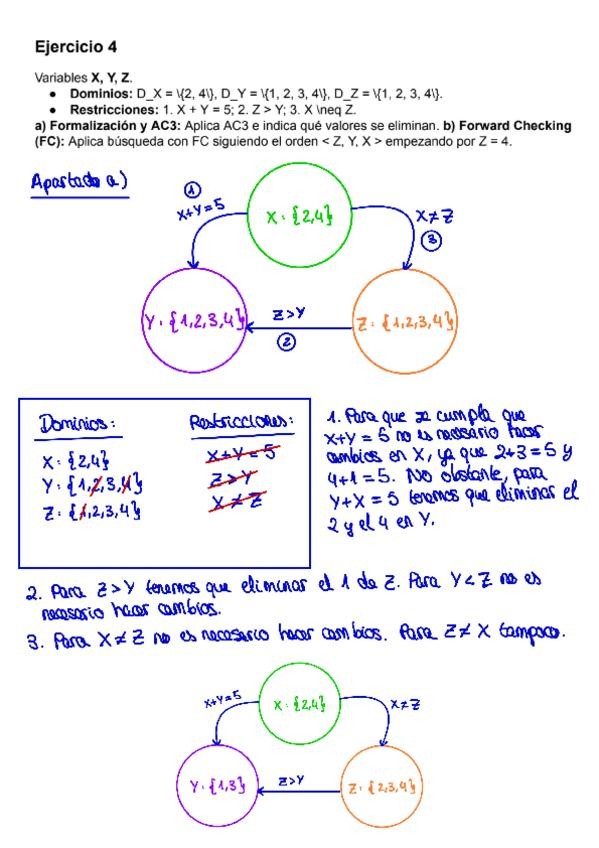 Ejercicio 4
Variables X, Y, Z.
● Dominios: D_X = \{2, 4\}, D_Y = \{1, 2, 3, 4\}, D_Z = \{1, 2, 3, 4\}.
● Restricciones: 1. X + Y = 5; 2. Z > Y; 3. X \neq Z.
a) Formalización y AC3: Aplica AC3 e indica qué valores se eliminan. b) Forward Checking
(FC): Aplica búsqueda con FC siguiendo el orden < Z, Y, X > empezando por Z = 4.
Apartado a)
1
X+Y=5
X: {2,4}
X≠Z
3
Y: {1,2,3,4}
Z>Y
2
Z: {1,2,3,4}
Dominios:
X: {2,4}
Y: {1,2,3,4}
Z: {1,2,3,4}
Restricciones:
X+Y=5
Z>Y
X≠Z
1. Para que se cumpla que
X+Y = 5 no es necesario hacer
cambios en X, ya que 2+3=5 y
4+1=5. No obstante, para
Y+X = 5 tenemos que eliminar el
2 y el 4 en Y.
2. Para Z>Y tenemos que eliminar el 1 de Z. Para Y<Z no es
necesario hacer cambios.
3. Para X≠Z no es necesario hacer cambios. Para Z≠X tampoco.
X+Y=5
X: {2,4}
X≠Z
Y: {1,3}
Z>Y
Z: {2,3,4}